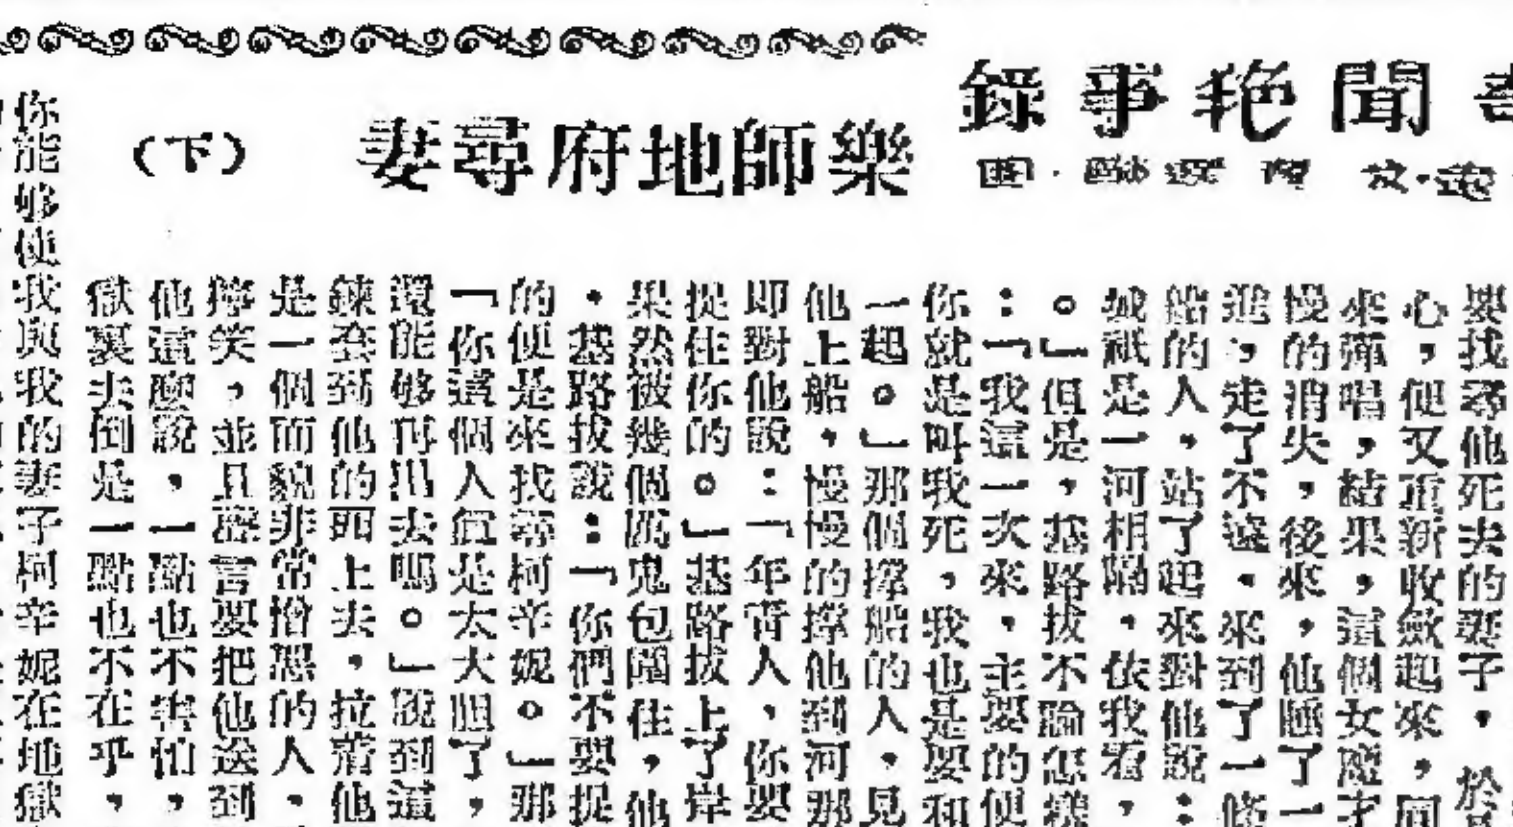 聞艳事錄
樂師地府尋妻
（下）
要找尋他死去的妻子，於
心，便又重新收斂起來，向
來彈唱，結果，這個女魔才
慢的消失，後來，他睡了一
進，走了不遠，來到了一條
船的人，站了起來對他說：
祇是一河相隔，依我看，
。」但是，基路拔不論怎樣
：「我這一次來，主要的便
你就是叫我死，我也是要和
一起。」那個撐船的人，見
他上船，慢慢的撐他到河那
即對他說：「年青人，你要
捉住你的。」基路拔上了岸
果然被幾個厲鬼包圍住，他
，基路拔說：「你們不要捉
的便是來找尋柯辛妮。」那
「你這個人眞是太大胆了，
還能够再出去嗎。」說到這
鍊套到他的上去，拉着他
是一個面貌非常憎惡的人，
獰笑，並且惡言要把他送到
他這麼說，一點也不害怕，
獄裏去倒是一點也不在乎，
你能够使我與我的妻子柯辛妮在地獄